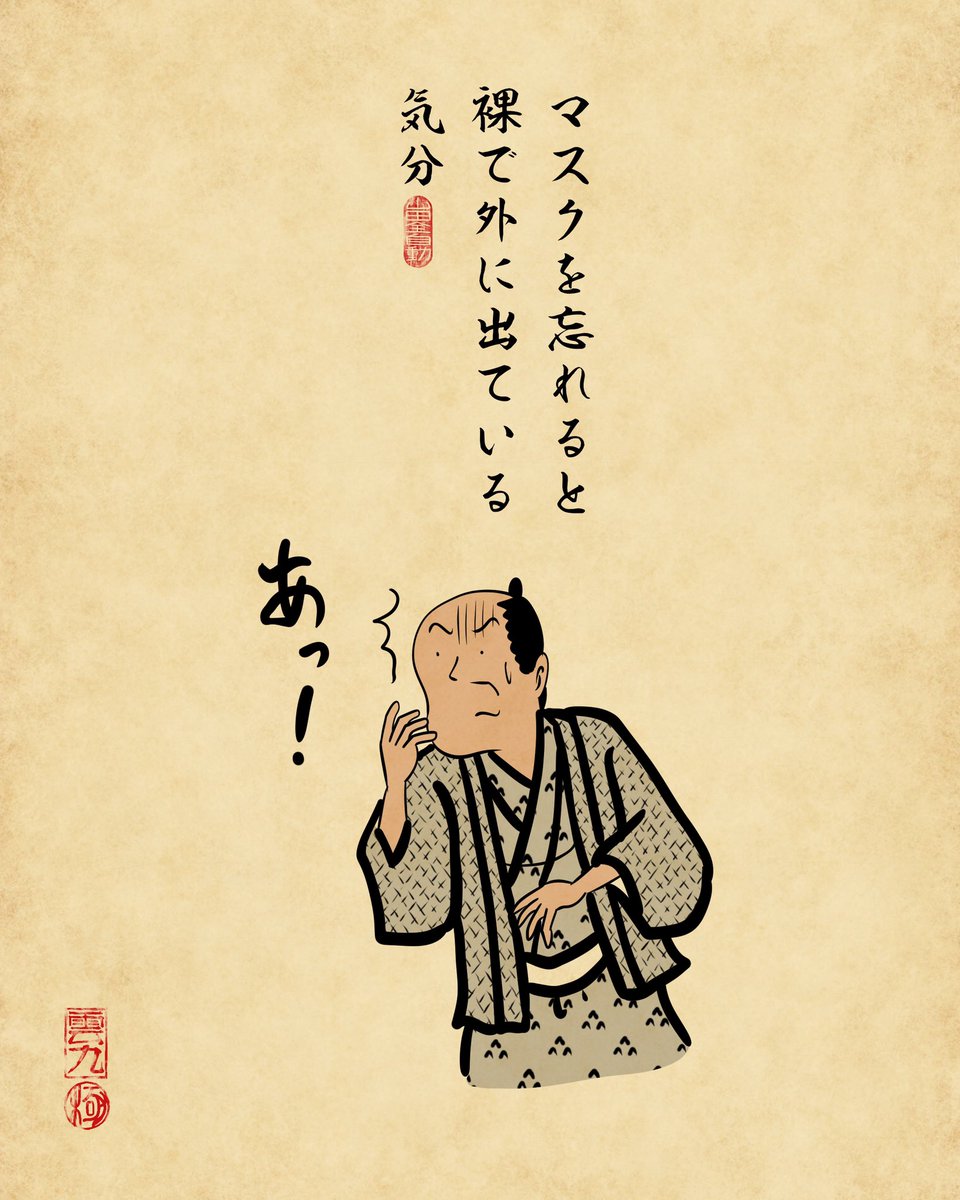 マスクを忘れると
裸で外に出ている
気分
あっ!